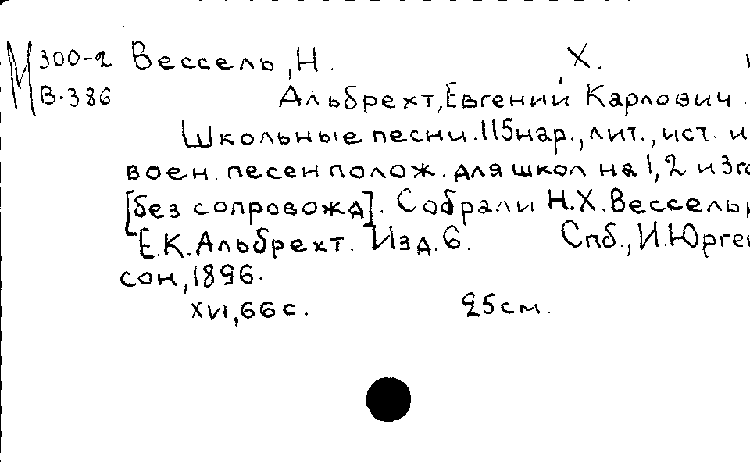 М 300-2 Вессель, Н. Х.
В-386 Альбрехт, Евгений Карлович.
Школьные песни. 115 нар., лит., ист. и
воен. песен полож. для школ на 1, 2 и 3 го
[без сопровожд]. Собрали Н.Х. Вессель,
Е.К. Альбрехт. Изд. 6. Спб., И. Юрген
сон, 1896.
XVI, 66 с. 25 см.